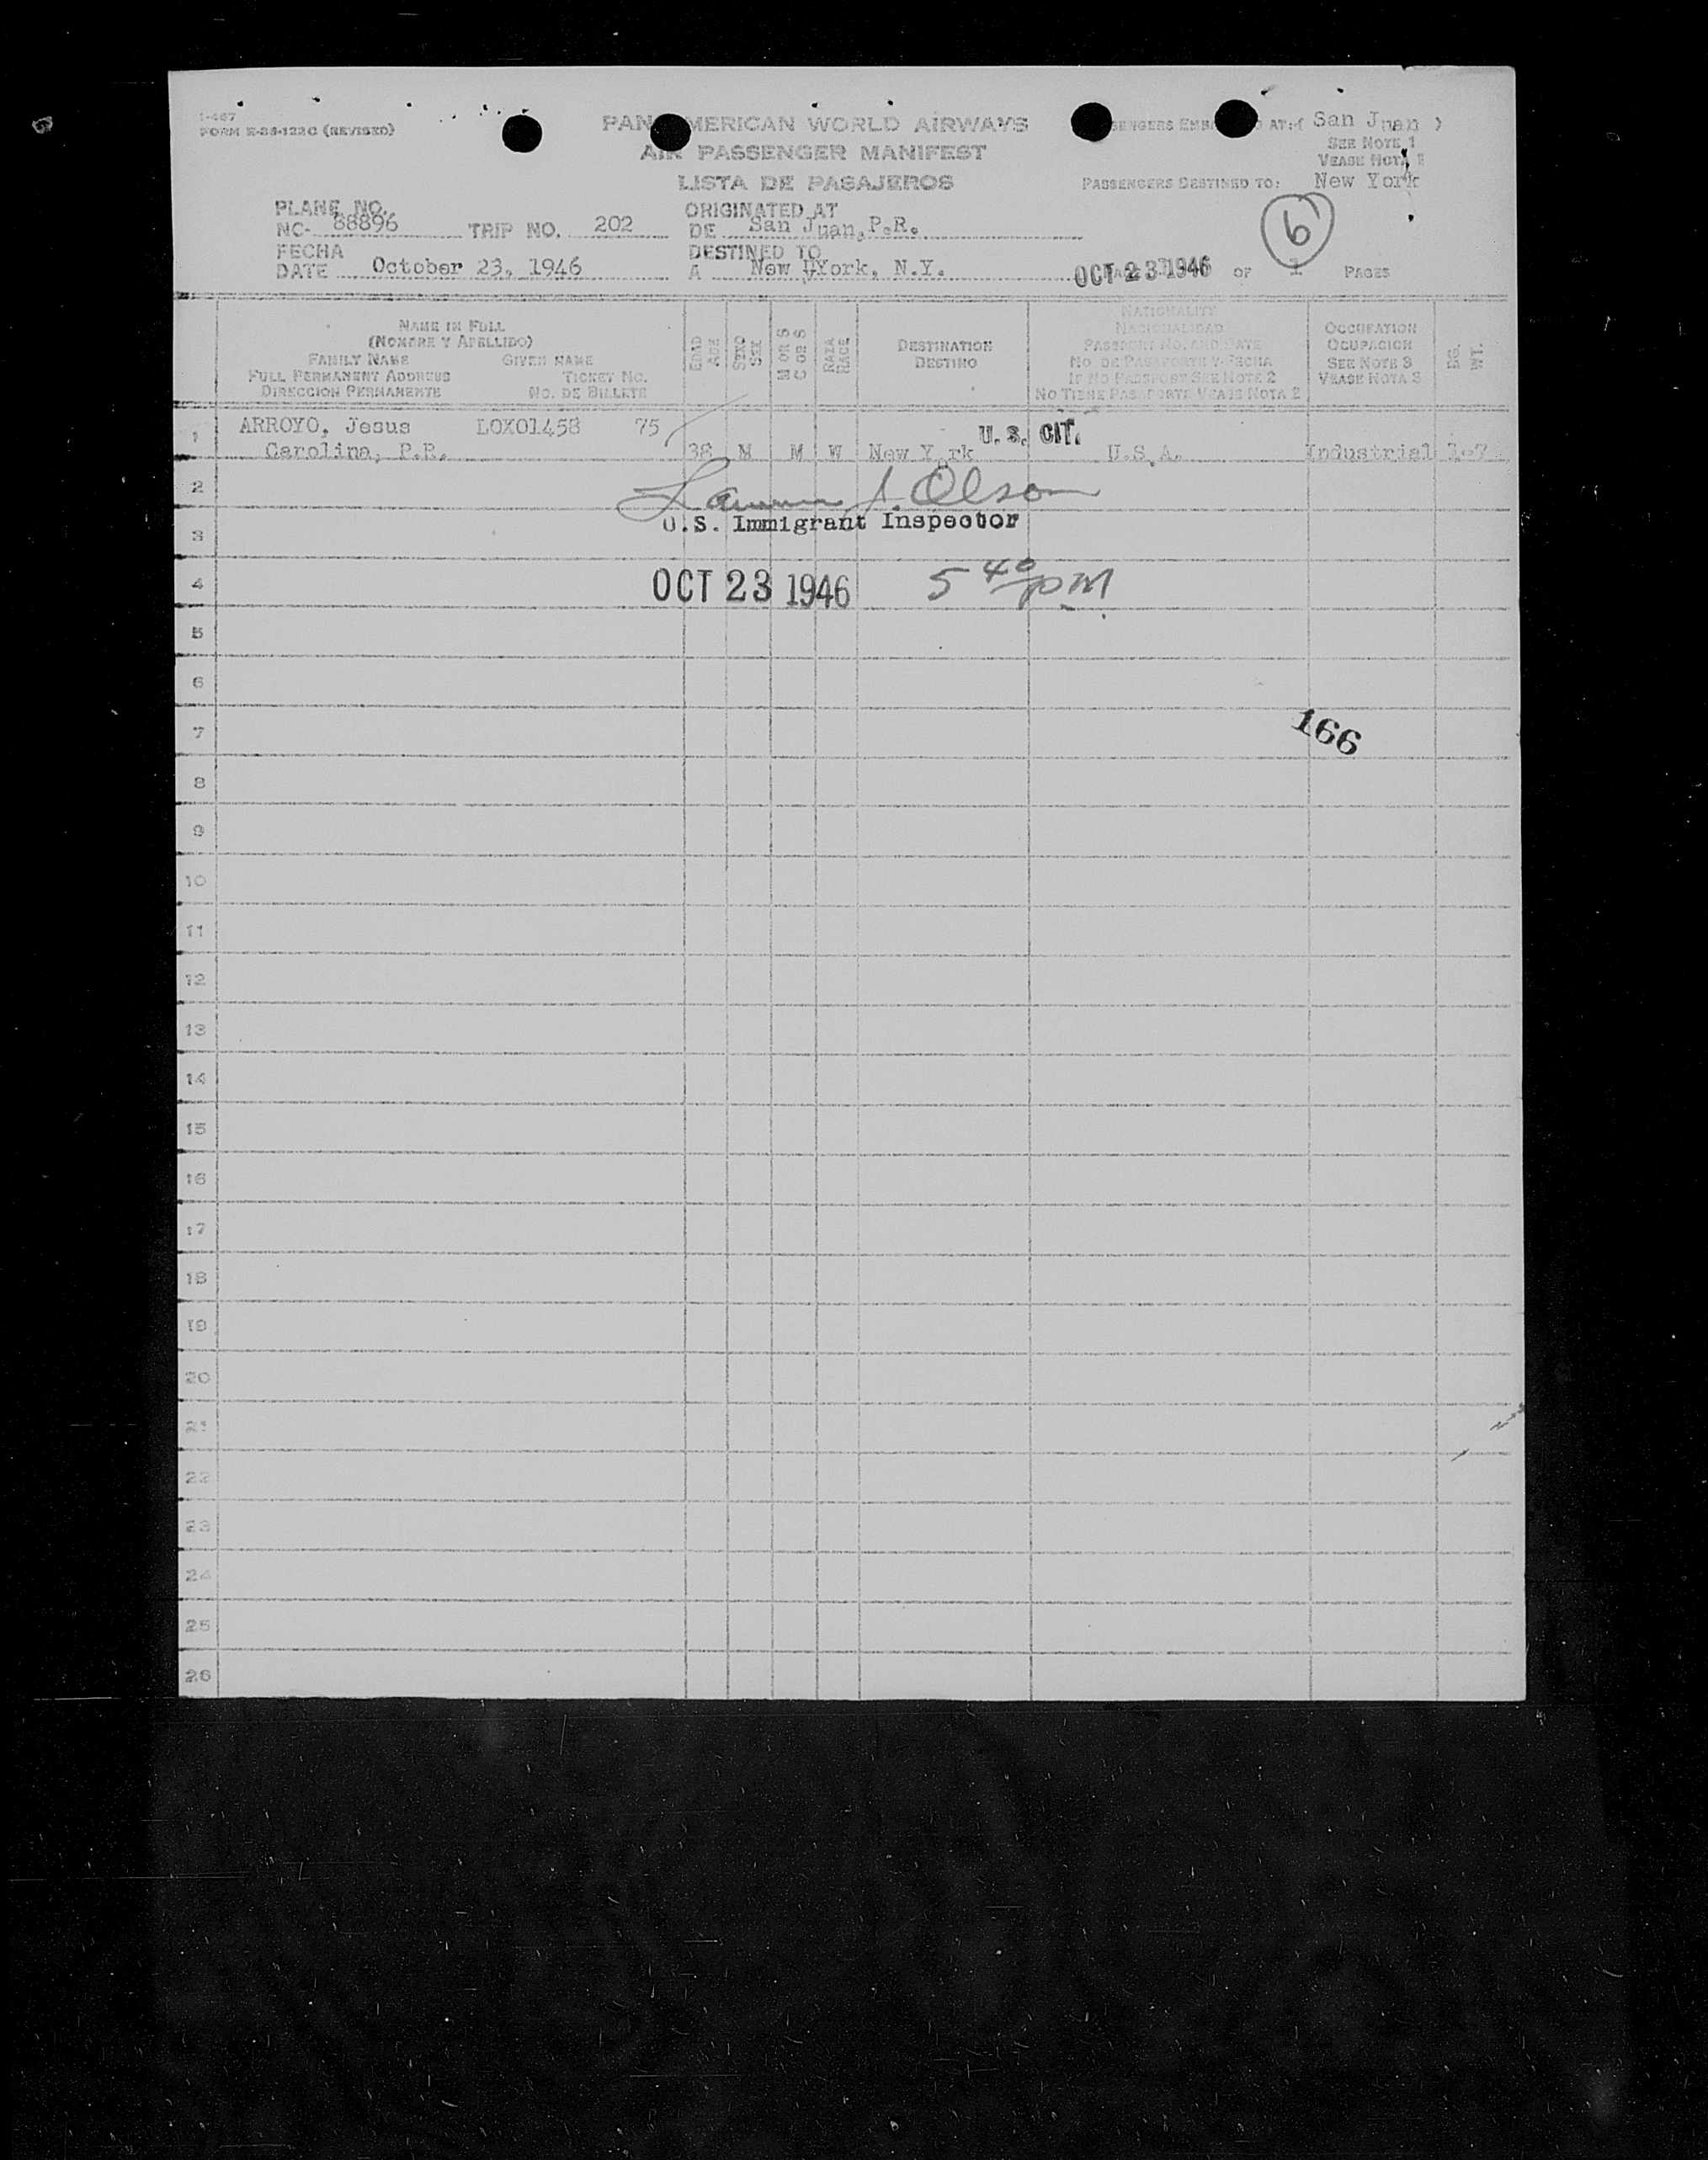 I-467
FORM E-24-122C (REVISED)
PAN AMERICAN WORLD AIRWAYS
AIR PASSENGER MANIFEST
LISTA DE PASAJEROS
AT: ( San Juan )
SEE NOTE 1
VEASE NOTA 1
PASSENGERS DESTINED TO: New York
6
PLANE NO.
NC- 88896 TRIP NO. 202
ORIGINATED AT
DE San Juan, P.R.
FECHA
DATE October 23, 1946
DESTINED TO
A New York, N.Y.
OCT 23 1946 OF 1 PAGES
NAME IN FULL
(NOMBRE Y APELLIDO)
FAMILY NAME GIVEN NAME
FULL PERMANENT ADDRESS TICKET NO.
DIRECCION PERMANENTE NO. DE BILLETE
EDAD
AGE
SEXO
SEX
M OR S
C OR S
RAZA
RACE
DESTINATION
DESTINO
NATIONALITY
NACIONALIDAD
PASSPORT NO. AND DATE
NO. DE PASAPORTE Y FECHA
IF NO PASSPORT SEE NOTE 2
NO TIENE PASAPORTE VEASE NOTA 2
OCCUPATION
OCUPACION
SEE NOTE 3
VEASE NOTA 3
WT.
1 ARROYO, Jesus LOX01458 75
Carolina, P.R. 38 M M W New York U. S. CIT. U.S.A. Industrial 1-7
2
J. Olson
U.S. Immigrant Inspector
3
4 OCT 23 1946 5 40 PM
5
6
7 166
8
9
10
11
12
13
14
15
16
17
18
19
20
21
22
23
24
25
26